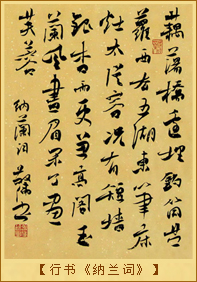 藕蕩橋邊埋釣筒苧
蘿西去五湖東筆床
灶太從容況有短墻
銀杏雨更兼高閣玉
蘭風畫眉閑了畫
芙蓉
納蘭詞
【行书《纳兰词》】